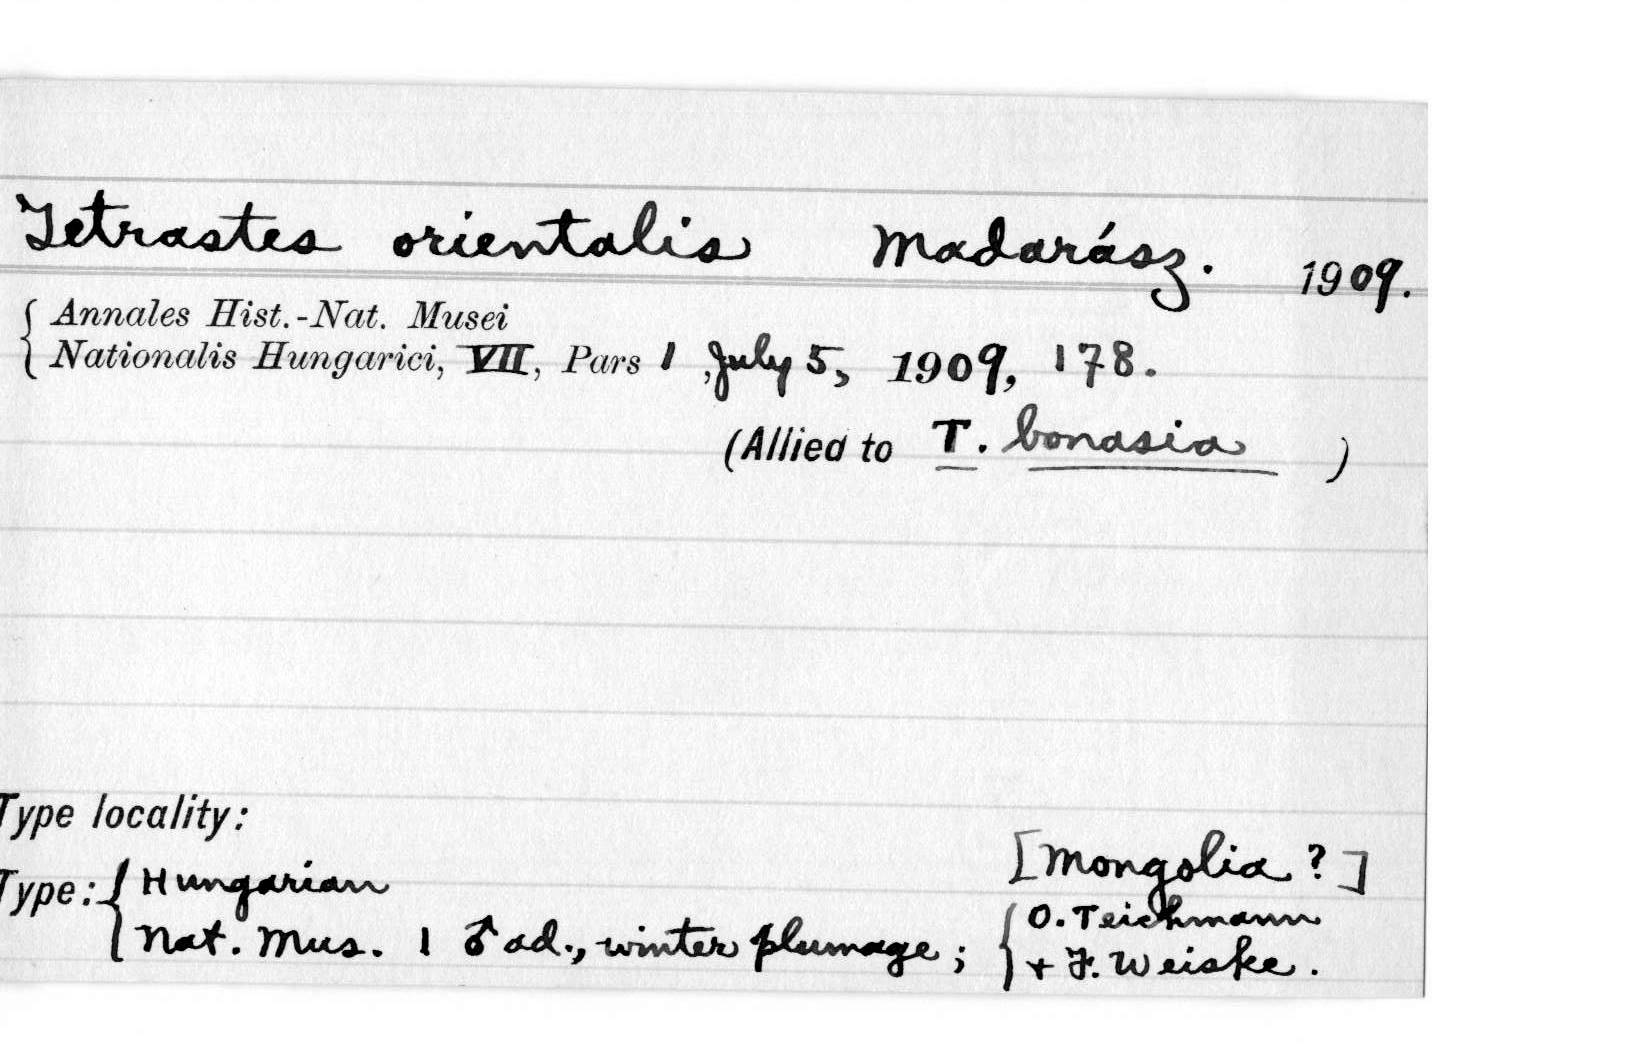 Tetrastes orientalis Madarász. 1909.
{ Annales Hist.-Nat. Musei
Nationalis Hungarici, VII, Pars 1, July 5, 1909, 178.
(Allied to T. bonasia )
Type locality:
[Mongolia ?]
Type: { Hungarian
Nat. Mus. 1 ♂ ad., winter plumage; { O. Teichmann
+ F. Weiske.